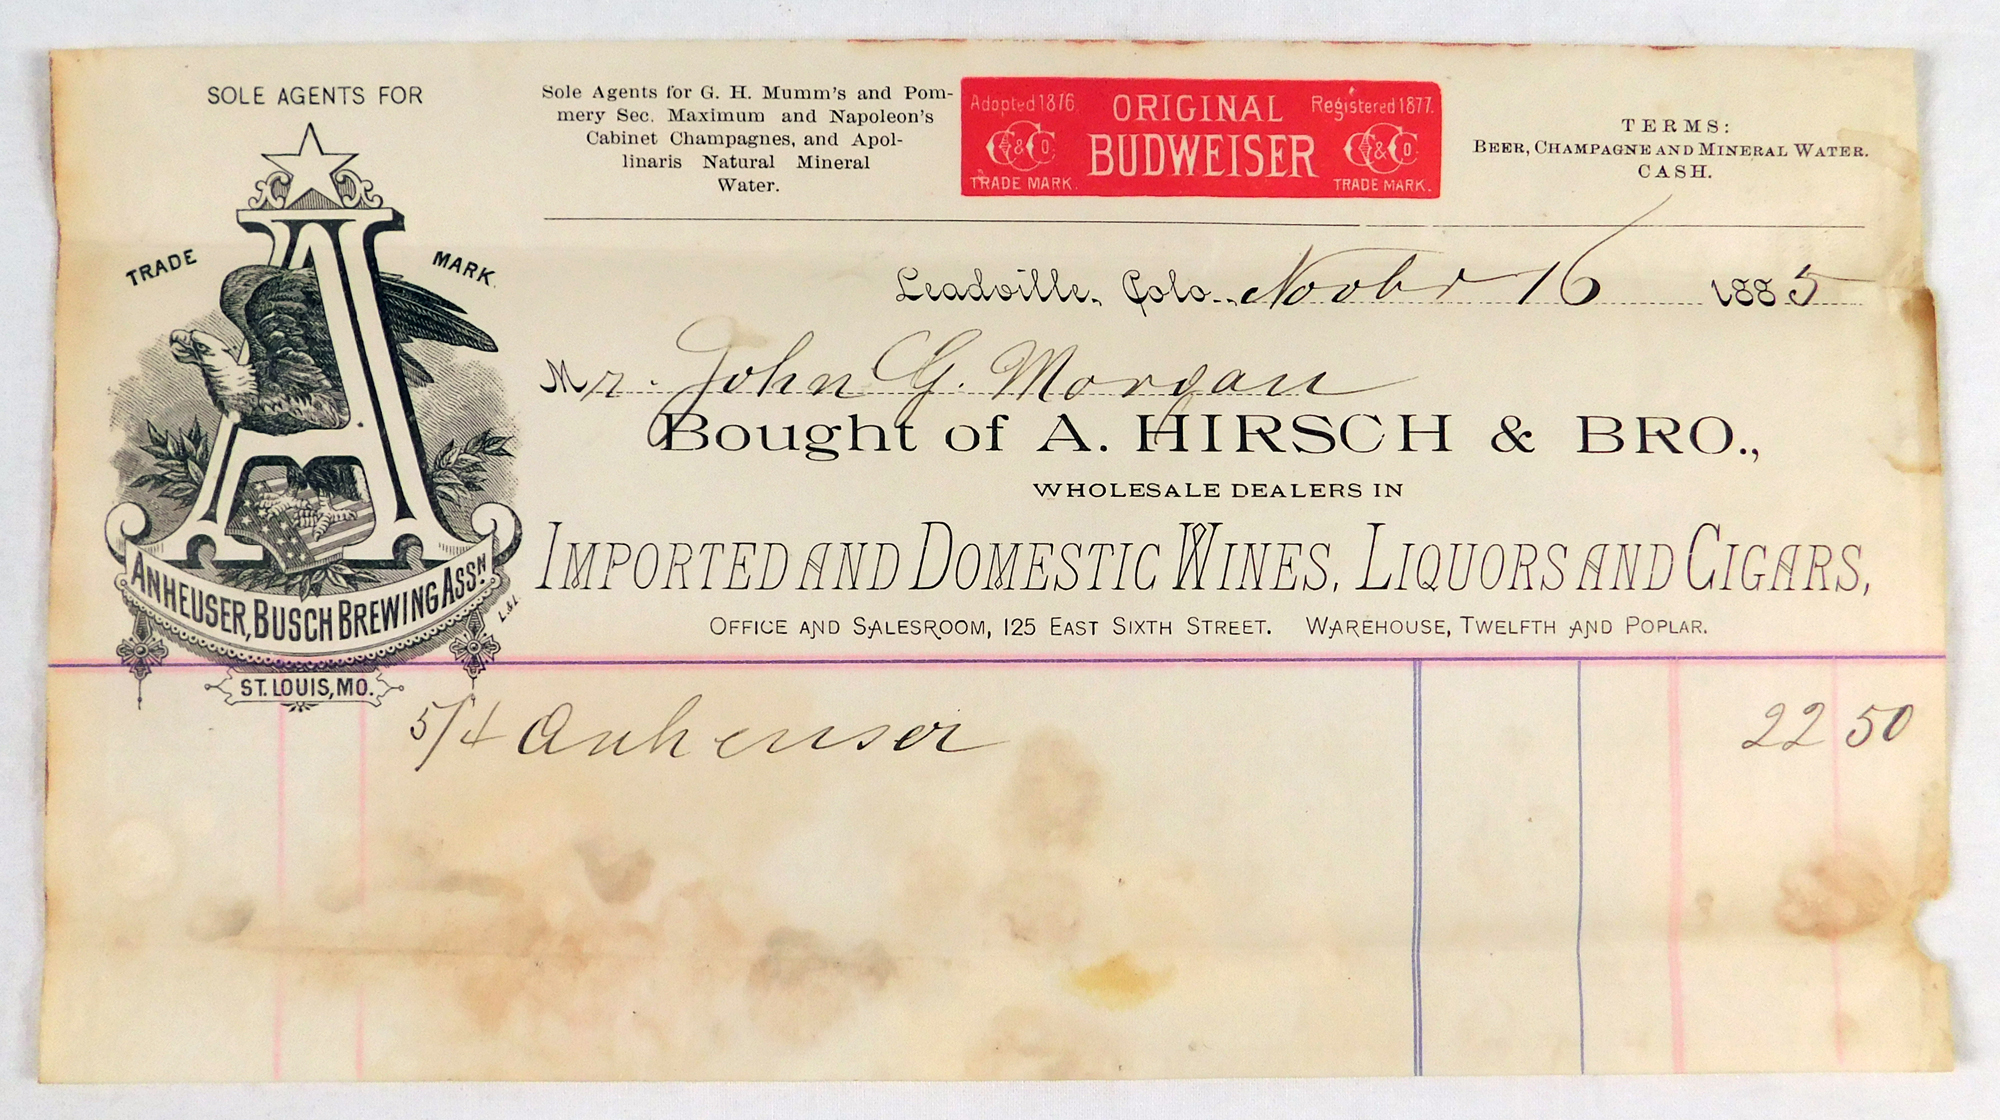 SOLE AGENTS FOR
TRADE MARK
A
ANHEUSER, BUSCH BREWING ASSN
L.&L.
ST. LOUIS, MO.
Sole Agents for G. H. Mumm's and Pom-
mery Sec. Maximum and Napoleon's
Cabinet Champagnes, and Apol-
linaris Natural Mineral
Water.
Adopted 1876. ORIGINAL Registered 1877.
C.C.&Co. BUDWEISER C.C.&Co.
TRADE MARK. TRADE MARK.
TERMS:
BEER, CHAMPAGNE AND MINERAL WATER.
CASH.
Leadville, Colo., Novbr 16 1885
Mr. John G. Morgan
Bought of A. HIRSCH & BRO.,
WHOLESALE DEALERS IN
IMPORTED AND DOMESTIC WINES, LIQUORS AND CIGARS,
OFFICE AND SALESROOM, 125 EAST SIXTH STREET. WAREHOUSE, TWELFTH AND POPLAR.
5/4 Anheuser 22 50